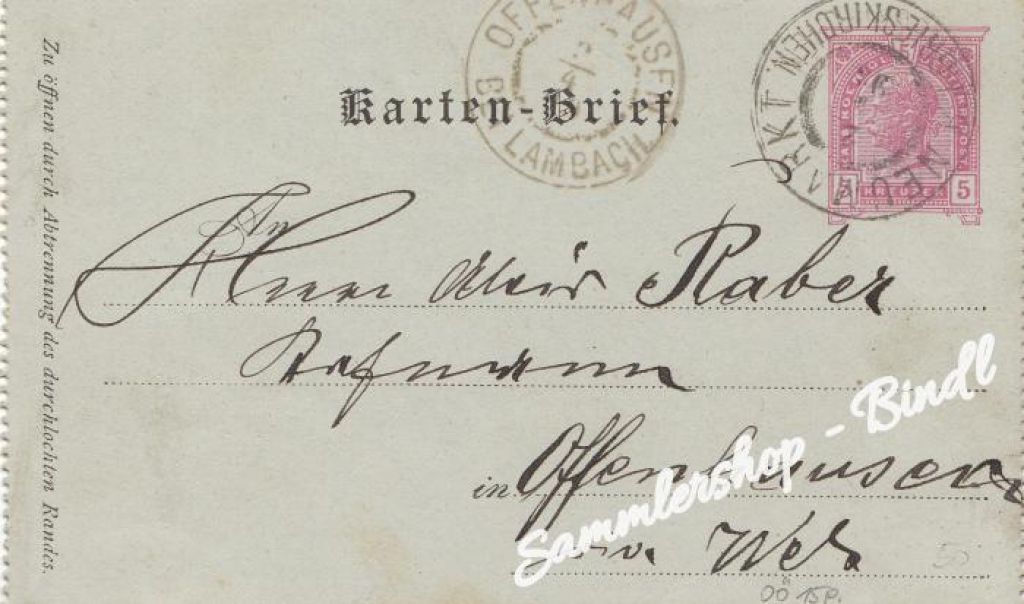 Zu öffnen durch Abtrennung des durchlochten Randes.
OFFENHAUSEN
B. LAMBACH
Karten-Brief.
NEUMARKT
GRIESKIRCHEN
5
An
Herrn Alois Raber
in Offenhausen
Wels
Sammlershop - Bindl
50
OÖ 15P.